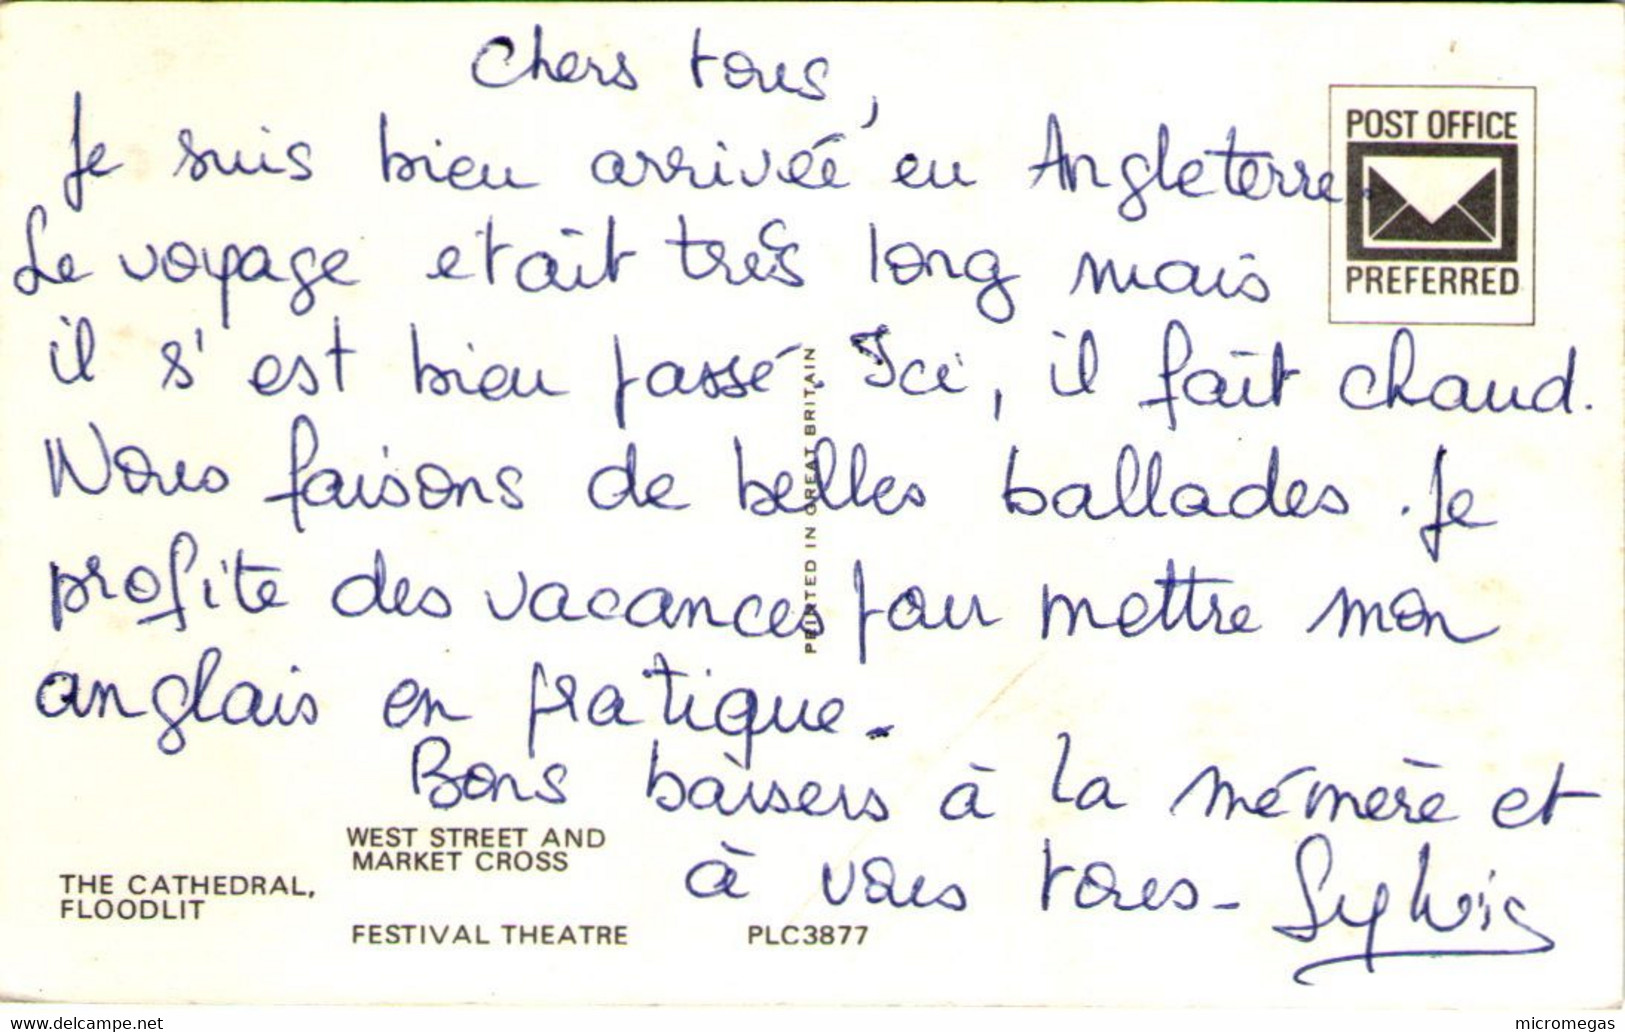 Chers tous,
Je suis bien arrivée en Angleterre.
Le voyage etait très long mais
il s'est bien passé. Ici, il fait chaud.
Nous faisons de belles ballades. Je
profite des vacances pour mettre mon
anglais en pratique.
Bons baisers à la mémère et
à vous tous - Sylvie
POST OFFICE
PREFERRED
PRINTED IN GREAT BRITAIN
WEST STREET AND
MARKET CROSS
THE CATHEDRAL,
FLOODLIT
FESTIVAL THEATRE
PLC3877
www.delcampe.net
micromegas